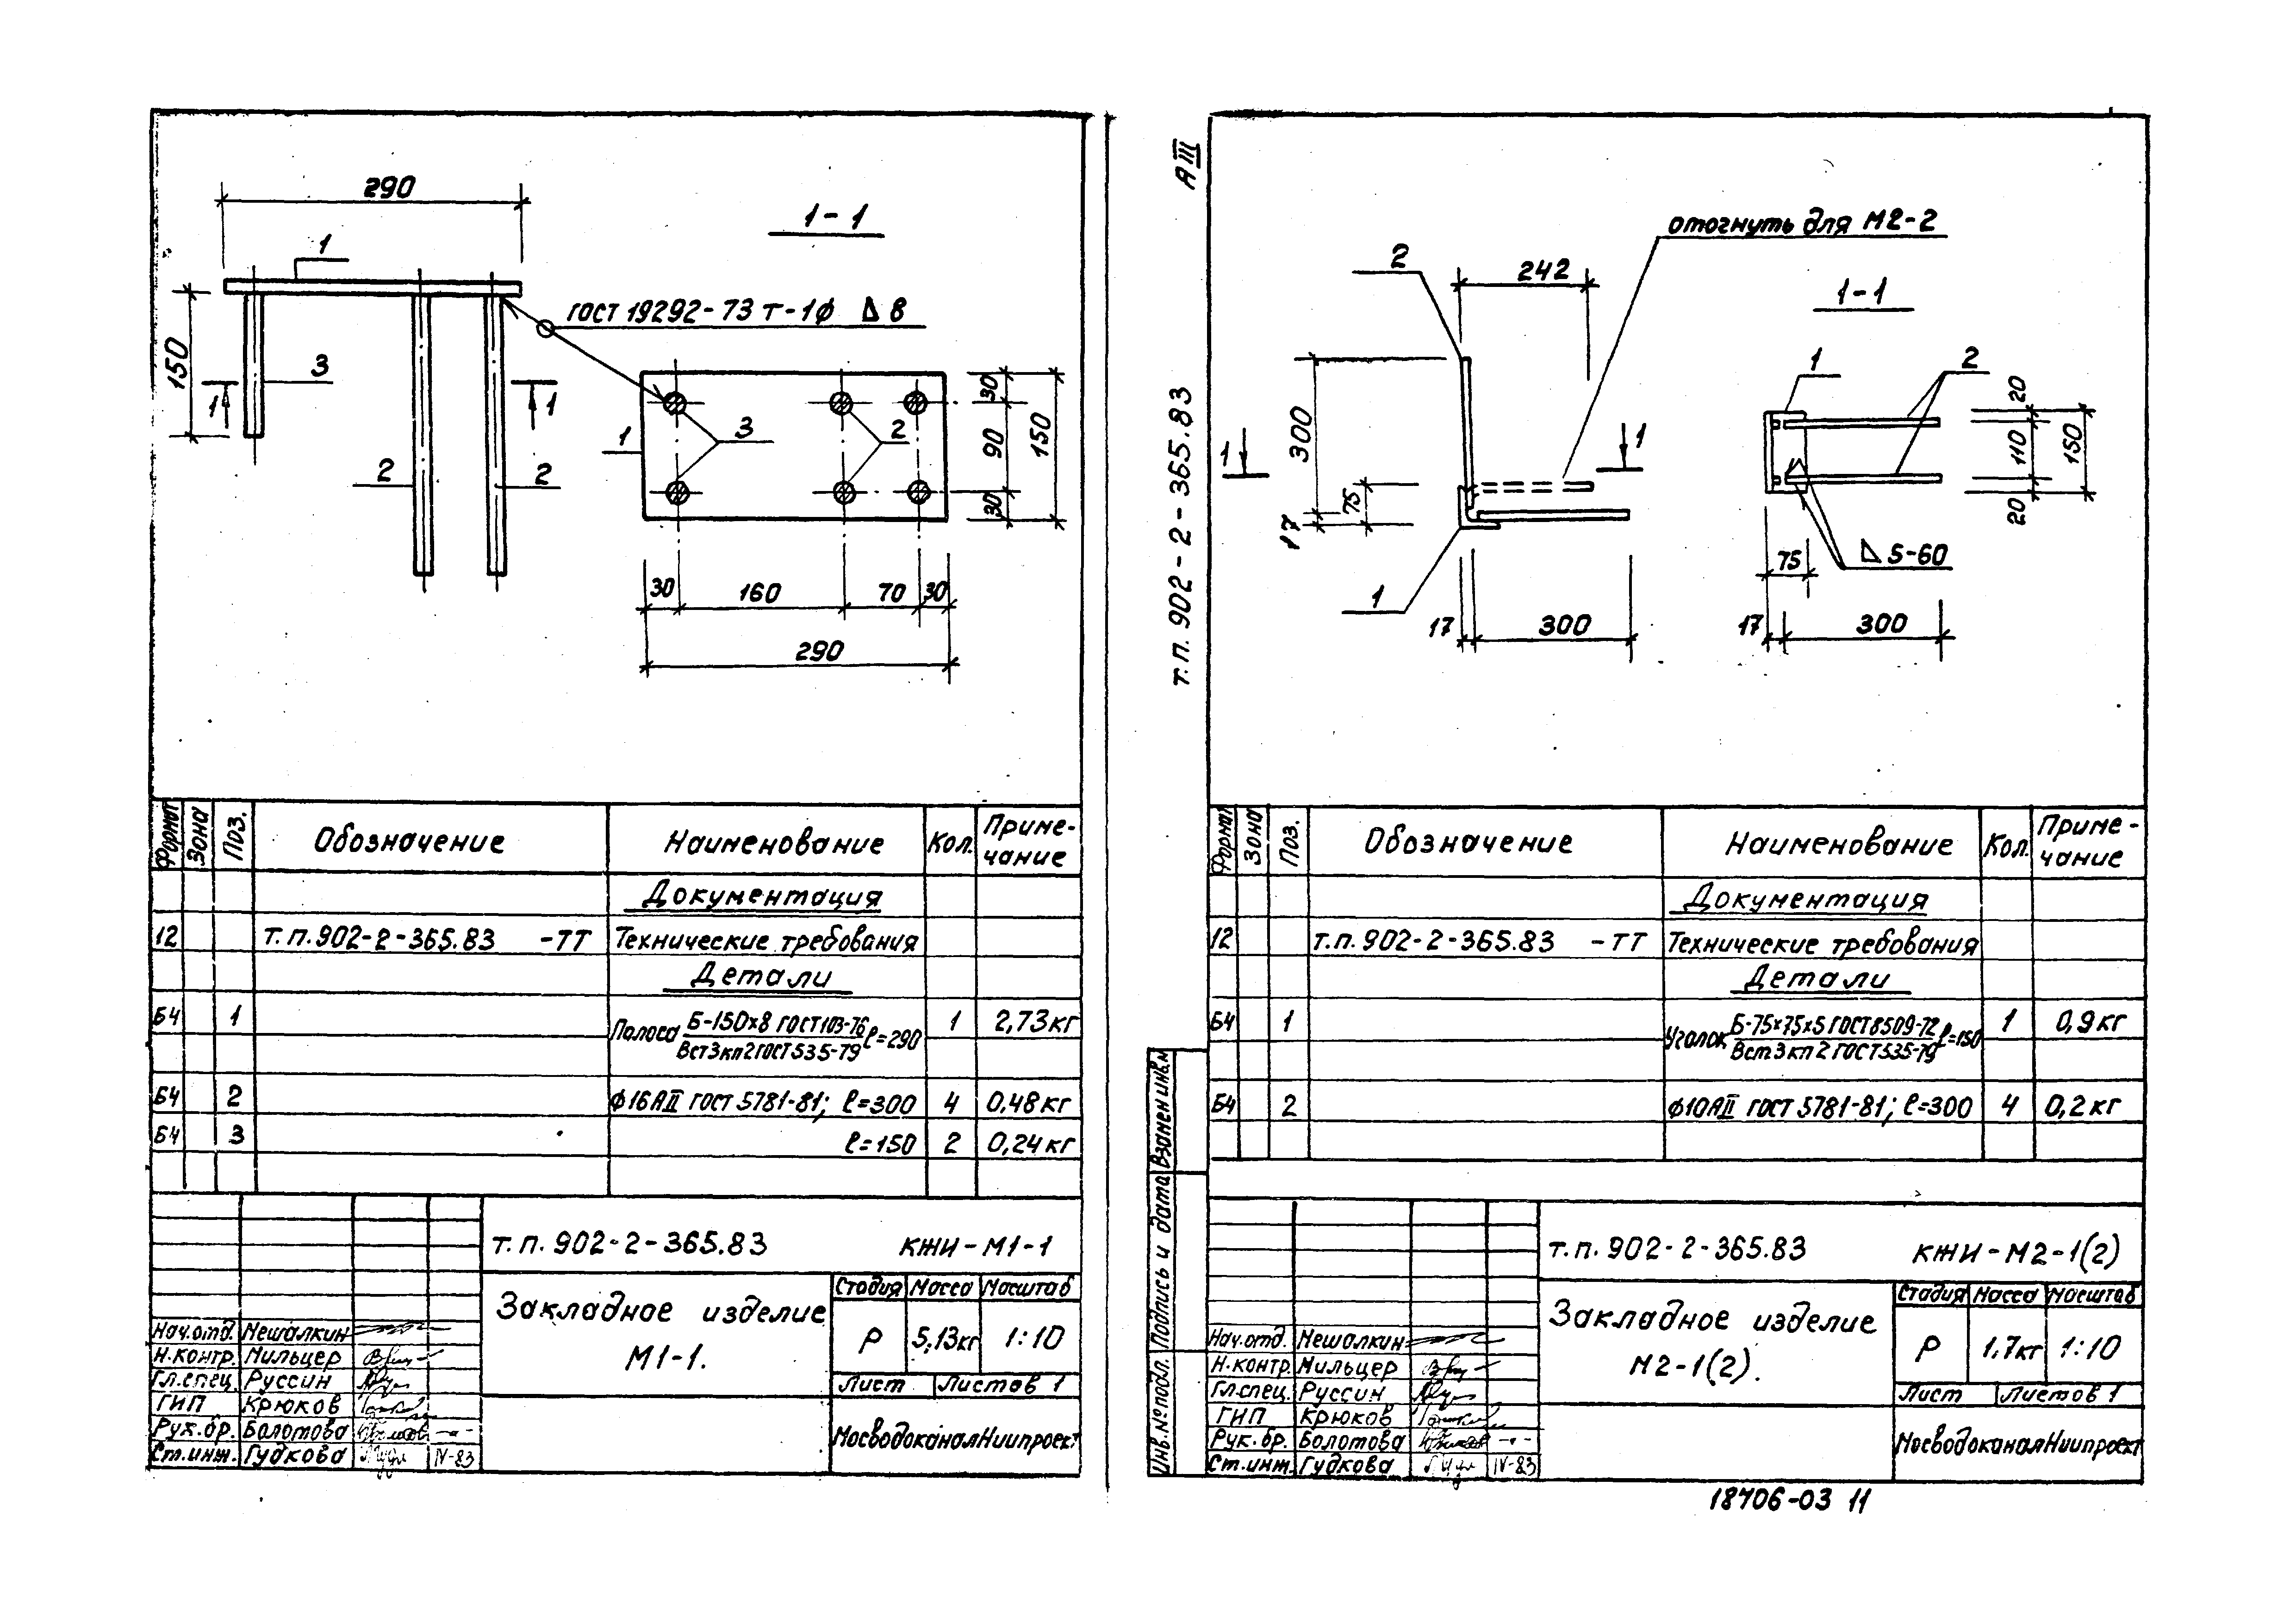 290
1-1
1
ГОСТ 19292-73 т-1ф 8
150
3
1
1
2
2
1
3
2
30
90
30
150
30
160
70
30
290
Формат
Зона
Поз.
Обозначение
Наименование
Кол.
Приме-
чание
Документация
12 т.п.902-2-365.83 -ТТ Технические требования
Детали
Б4 1 Полоса Б-150х8 ГОСТ103-76 ℓ=290 1 2,73кг
Вст3кп2ГОСТ535-79
Б4 2 ф16АII ГОСТ 5781-81; ℓ=300 4 0,48кг
Б4 3 ℓ=150 2 0,24кг
т.п.902-2-365.83 КЖИ-М1-1
Закладное изделие
М1-1.
Стадия Масса Масштаб
Р 5,13кг 1:10
Лист Листов 1
МосводоканалНиипроект
Нач.отд. Мешалкин
Н.контр. Мильцер
Гл.спец. Руссин
ГИП Крюков
Рук.бр. Болотова
Ст.инж. Гудкова IV-83
АIII
т.п. 902-2-365.83
отогнуть для М2-2
2
242
1-1
300
75
17
1
1
1
17
300
1
2
20
110
20
150
5-60
75
17
300
Формат
Зона
Поз.
Обозначение
Наименование
Кол.
Приме-
чание
Документация
12 т.п.902-2-365.83 -ТТ Технические требования
Детали
Б4 1 Уголок Б-75х75х5 ГОСТ8509-72 ℓ=150 1 0,9кг
Вст3кп2 ГОСТ535-79
Б4 2 ф10АII ГОСТ 5781-81; ℓ=300 4 0,2кг
т.п.902-2-365.83 КЖИ-М2-1(2)
Закладное изделие
М2-1(2).
Стадия Масса Масштаб
Р 1,7кг 1:10
Лист Листов 1
МосводоканалНиипроект
Нач.отд. Мешалкин
Н.контр. Мильцер
Гл.спец. Руссин
ГИП Крюков
Рук.бр. Болотова
Ст.инж. Гудкова IV-83
Инв.№подл.
Подпись и дата
Взамен инв.№
18706-03 11